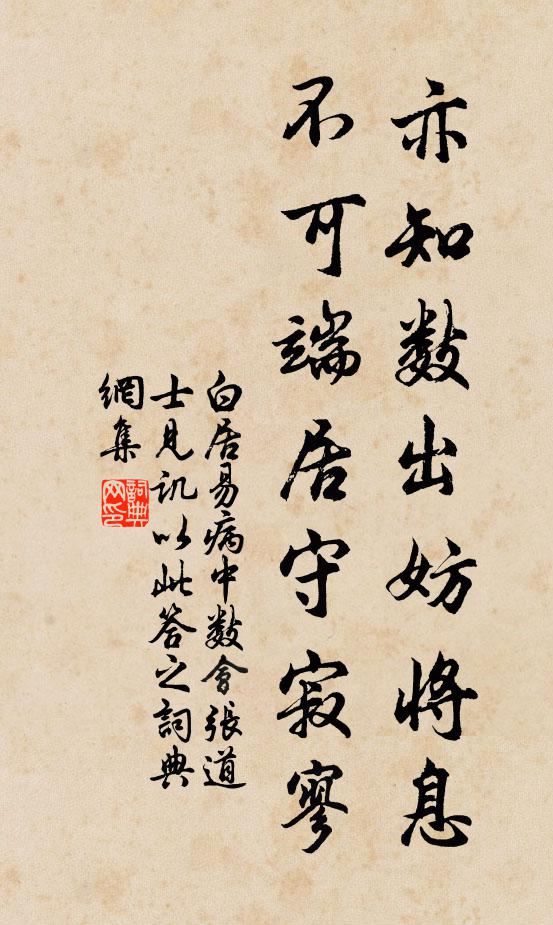 亦知数出妨将息
不可端居守寂寥
白居易病中数会张道
士见讥以此答之詞典
網集
詞典
网印